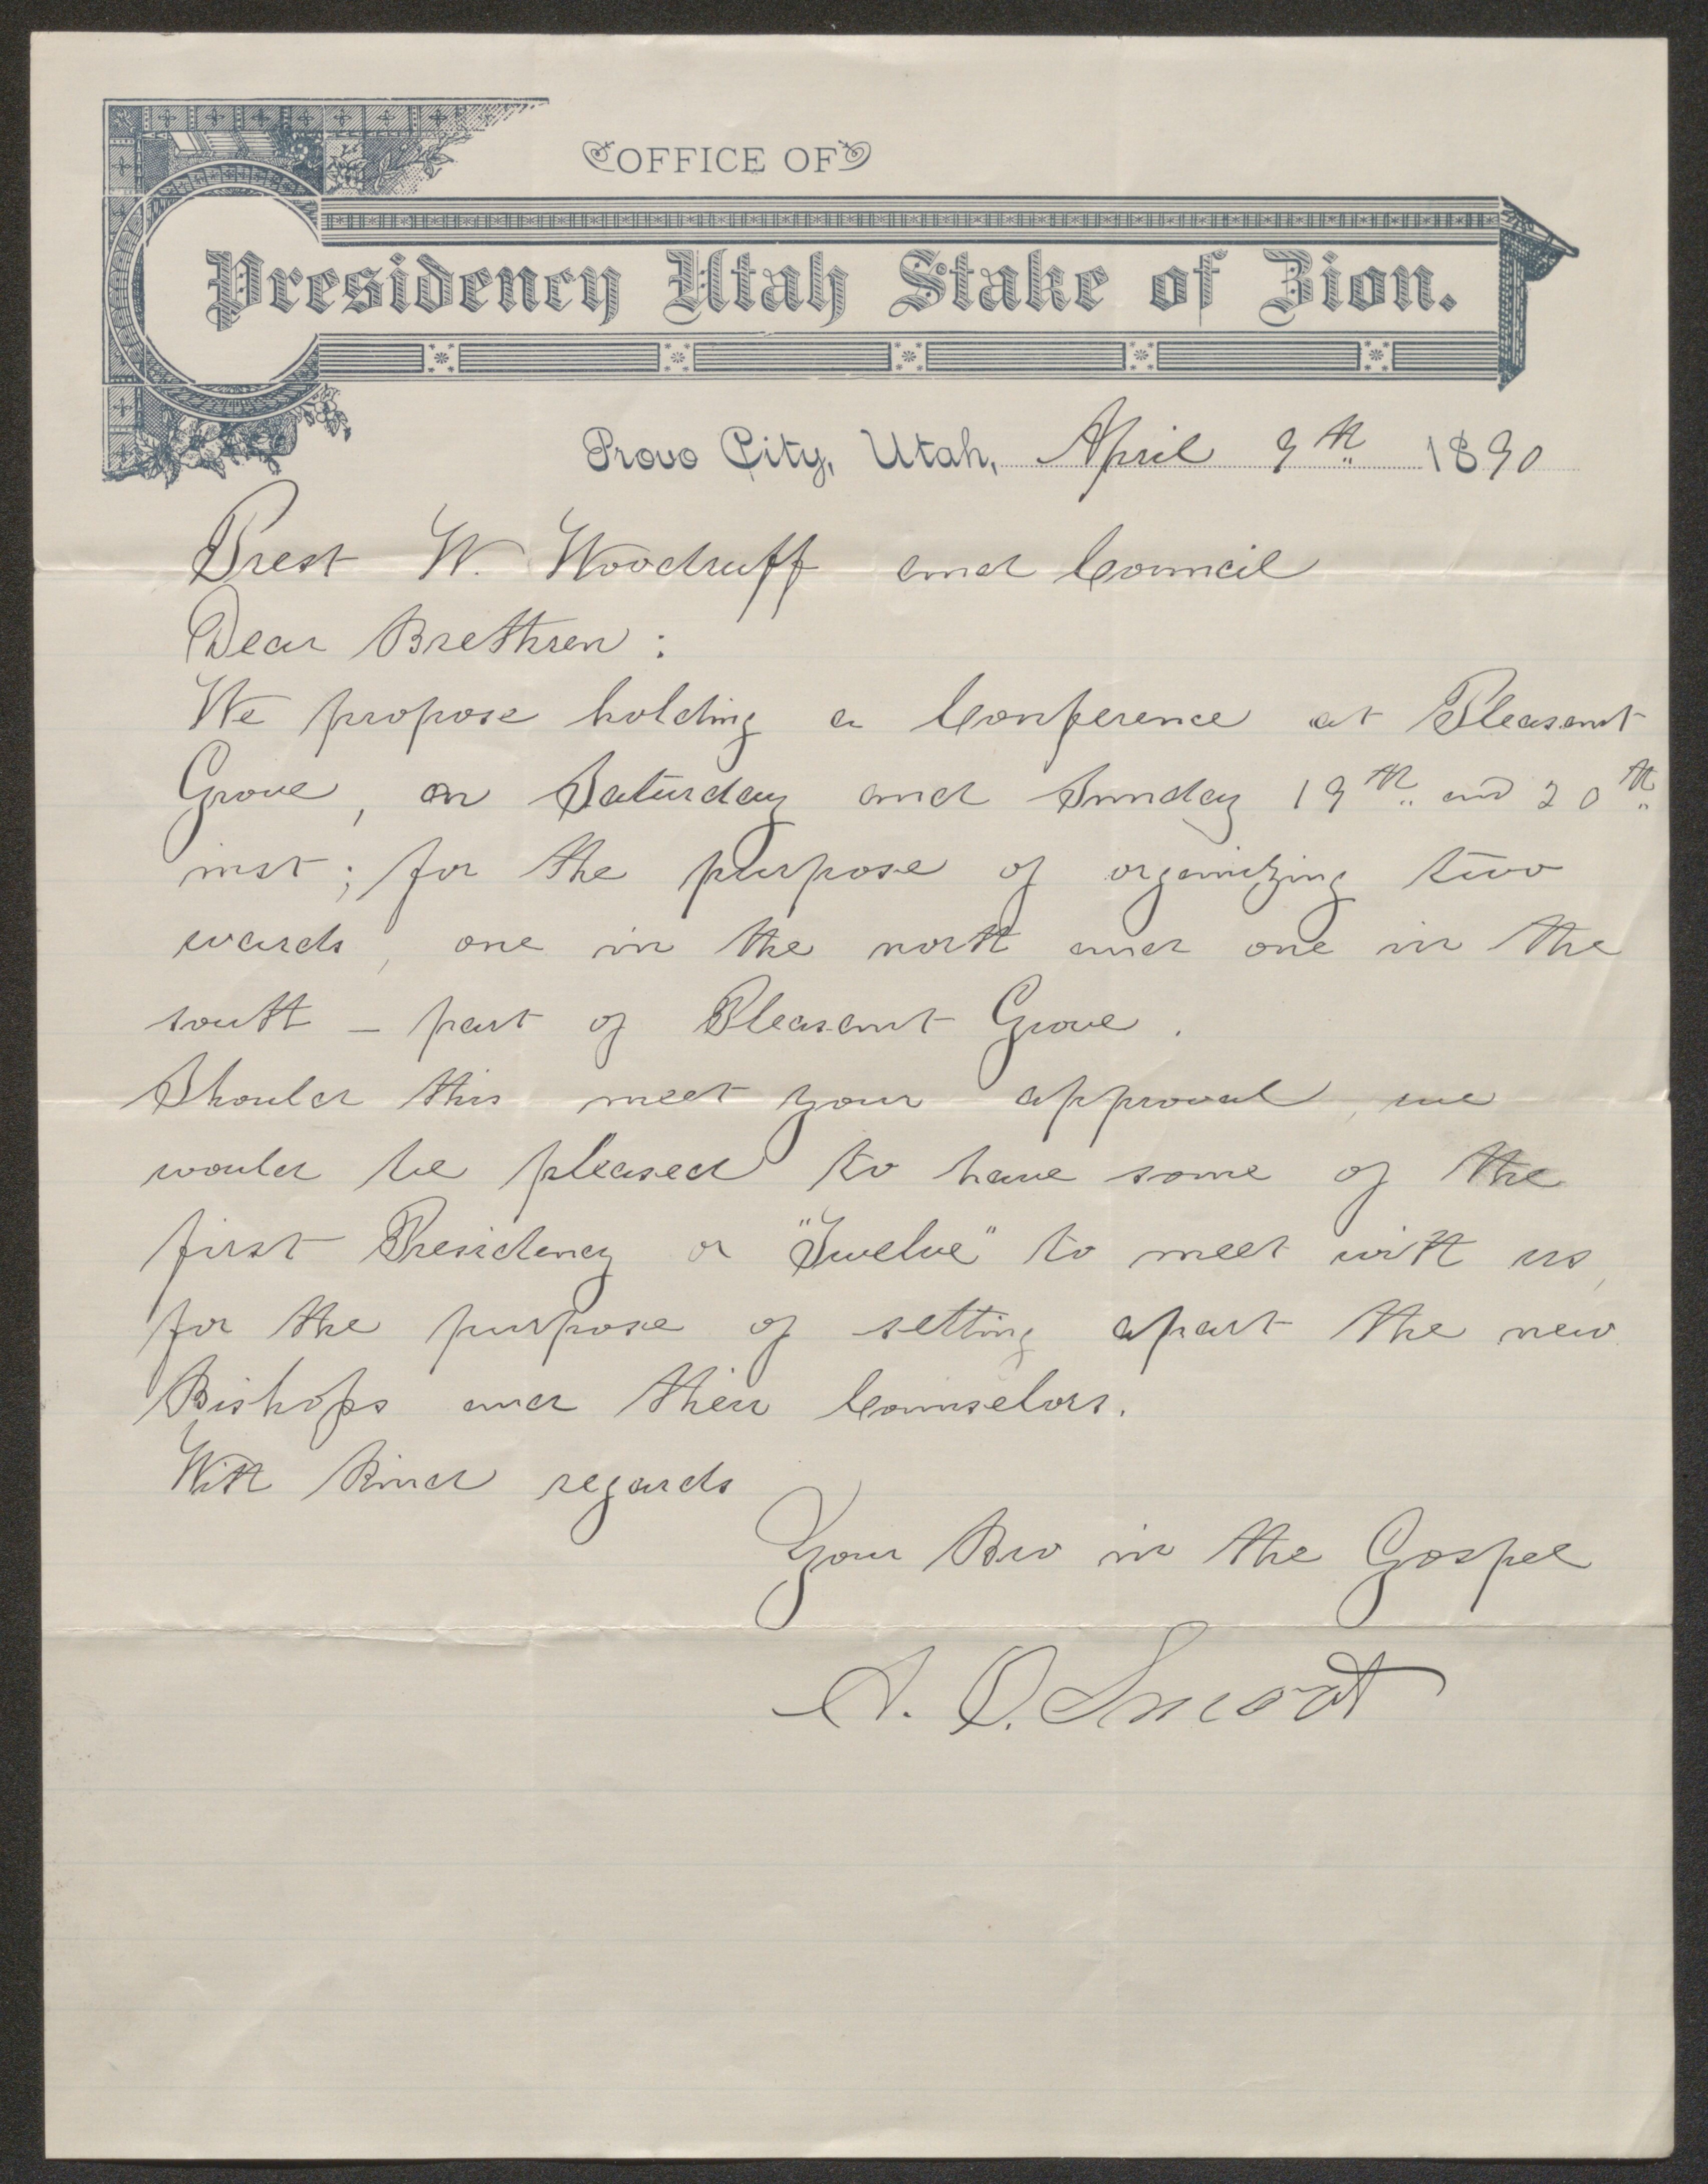 OFFICE OF
Presidency Utah Stake of Zion.
Provo City, Utah, April 9th 1890
Prest W. Woodruff and Council
Dear Brethren:
We propose holding a Conference at Pleasant
Grove, on Saturday and Sunday 19th and 20th
inst; for the purpose of organizing two
wards, one in the north and one in the
south - part of Pleasant Grove.
Should this meet your approval, we
would be pleased to have some of the
first Presidency or "Twelve" to meet with us,
for the purpose of setting apart the new
Bishops and their Counselors.
With kind regards
Your Bro in the Gospel
A. O. Smoot